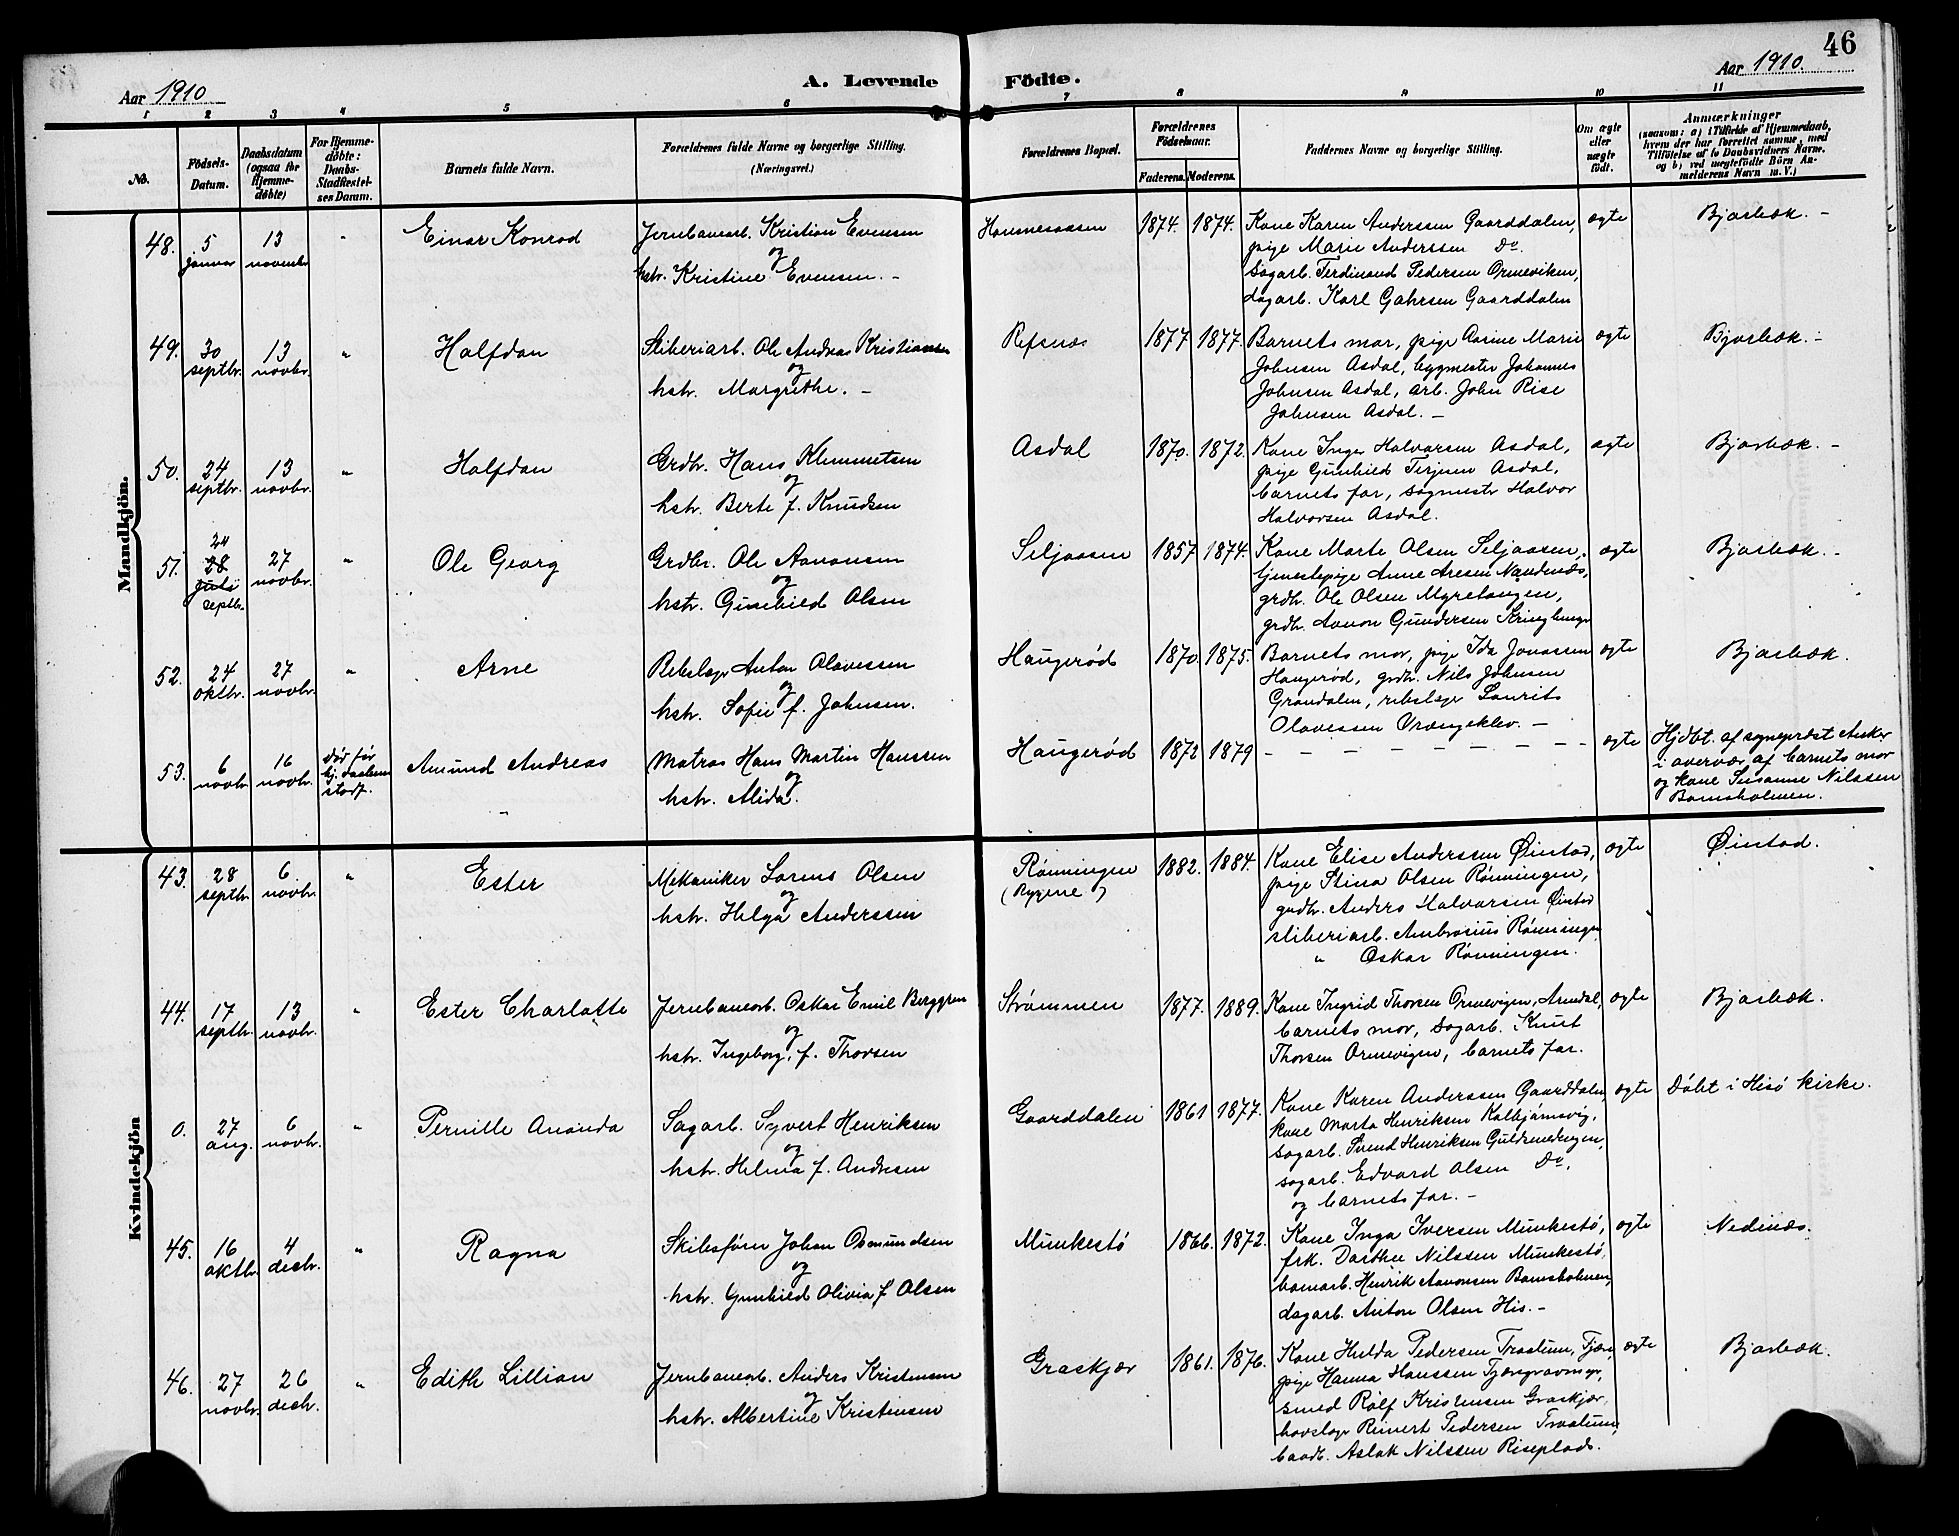 46
Aar 1910
A. Levende Födte.
Aar 1910.
1 2 3 4 5 6 7 8 9 10 11
No.
Födsels-Datum.
Daabsdatum (ogsaa for Hjemmedøbte)
For Hjemmedøbte: Daabs-Stadfæstelses Datum.
Barnets fulde Navn.
Forældrenes fulde Navne og borgerlige Stilling. (Næringsvei.)
Forældrenes Bopæl.
Forældrenes Födselsaar.
Faderens. Moderens.
Faddernes Navne og borgerlige Stilling.
Om ægte eller uægte födt.
Anmærkninger
(saasom: a) i Tilfælde af Hjemmedaab,
hvem der har forrettet samme, med
Tilföielse af to Daabsvidners Navne,
og b) ved uægtefödte Börn An-
melderens Navn m. V.)
Mandkjön.
48. 5 januar 13 novenbr " Einar Konrad
Jernbanearb. Kristian Evensen
og
hstr. Kristine Evensen. -
1874. 1874.
Kone Karen Anderssen Gaarddalen,
pige Marie Anderssen Do.
sagarb. Ferdinand Pedersen Ormeviken,
dagarb. Karl Gahrsen Gaarddalen
ægte Bjorbæk. -
49. 30 septbr. 13 novbr. " Halfdan
Sliberiarb. Ole Andreas Kristiansen
og
hstr. Margrethe. -
Refsnæs 1877 1877.
Barnets mor, pige Aasine Marie
Johnsen Asdal, bygmester Johannes
Johnsen Asdal, arb. John Rise
Johnsen Asdal. -
ægte Bjorbæk. -
50. 24 septbr. 13 novbr. " Halfdan
Grdbr. Hans Klemmetsen
og
hstr. Berte f. Knudsen
Asdal 1870. 1872.
Kone Inger Halvorsen Asdal,
pige Gunhild Terjesen Asdal,
barnets far, sagmestr Halvor
Halvorsen Asdal.
ægte Bjorbæk. -
51. 24 28 juli septbr. 27 novbr. " Ole Georg
Grdbr. Ole Aanonsen
og
hstr. Gunhild Olsen
Seljaasen 1857 1874.
Kone Marte Olsen Seljaasen,
tjenestepige Anne Aresen
grdb. Ole Olsen Myretangen,
grdb. Aanon Gundersen
ægte Bjorbæk. -
52. 24 oktbr. 27 novbr. " Arne
Rebslagr Anton Olavessen
og
hstr. Sofie f. Johnsen.
Haugerød 1870. 1875.
Barnets mor, pige Ida Jonassen
Haugerød, grdb. Nils Johnsen
Grandalen, rebslagr Laurits
Olavessen Vrængeklev. -
ægte Bjorbæk.
53. 6 novbr. 16 novbr. Død før hj. daaben stadf. Amund Andreas
Matros Hans Martin Hanssen
og
hstr. Alida.
Haugerød 1872 1879 - - - - - - - - - ægte
Hjdbt. af sogneprest Anker
i overvær af barnets mor
og kone Susanne Nilssen
Bomsholmen.
Kvindekjön
43. 28 septbr. 6. novbr. " Ester
Mekaniker Lorens Olsen
og
hstr. Helga Anderssen
Rønningen
(Rygene) 1882. 1884.
Kone Elise Anderssen Øinstad,
pige Stina Olsen Rønningen,
gudb. Anders Halvorsen Øinstad
sliberiarb. Ambrosius Rønningen
" Oskar Rønningen.
ægte Øinstad.
44. 17 septbr. 13 novbr. " Ester Charlotte
Jernbanearb. Oskar Emil Berggren
og
hstr. Ingeborg, f. Thorsen
Strømmen 1877. 1889.
Kone Ingrid Thorsen Ormevigen, Arendal,
barnets mor, sagarb. Knut
Thorsen Ormevigen, barnets far.
ægte Bjorbæk.
0. 27 aug. 6 novbr. " Pernille Ananda
Sagarb. Syvert Henriksen
og
hstr. Helma f. Andresen
Gaarddalen 1861 1877.
Kone Karen Anderssen Gaarddalen
kone Marta Henriksen Kalbjørnsvig,
sagarb. Svend Henriksen
sagarb. Edvard Olsen Do,
og barnets far. -
ægte Døbt i Hisø kirke.
45. 16 oktbr. 4 decbr. " Ragna
Skibsførn Johan Osmundsen
og
hstr. Gunhild Olivia f Olsen
Munkestø 1866. 1872.
Kone Inga Iversen Munkestø,
frk. Dorthea Nilssen Munkestø,
bomarb. Henrik Aanonsen Bomsholmen,
dagarb. Anton Olsen His. -
ægte Nedenæs.
46. 27 novbr. 26 decbr. " Edith Lillian
Jernbanearb. Anders Kristensen
og
hstr. Albertine Kristensen
Graskjær 1861. 1876.
Kone Hulda Pedersen
pige Hanna Hanssen
smed Rolf Kristensen Graskjær,
hovslagr Reinert Pedersen
baadb. Aslak Nilssen Riseplads.
ægte Bjorbæk.